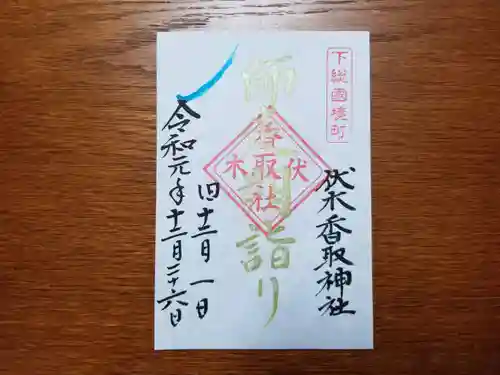 下総國境町
伏木香取神社
師走朔詣り
伏木
香取社
旧十二月一日
令和元年十二月二十六日